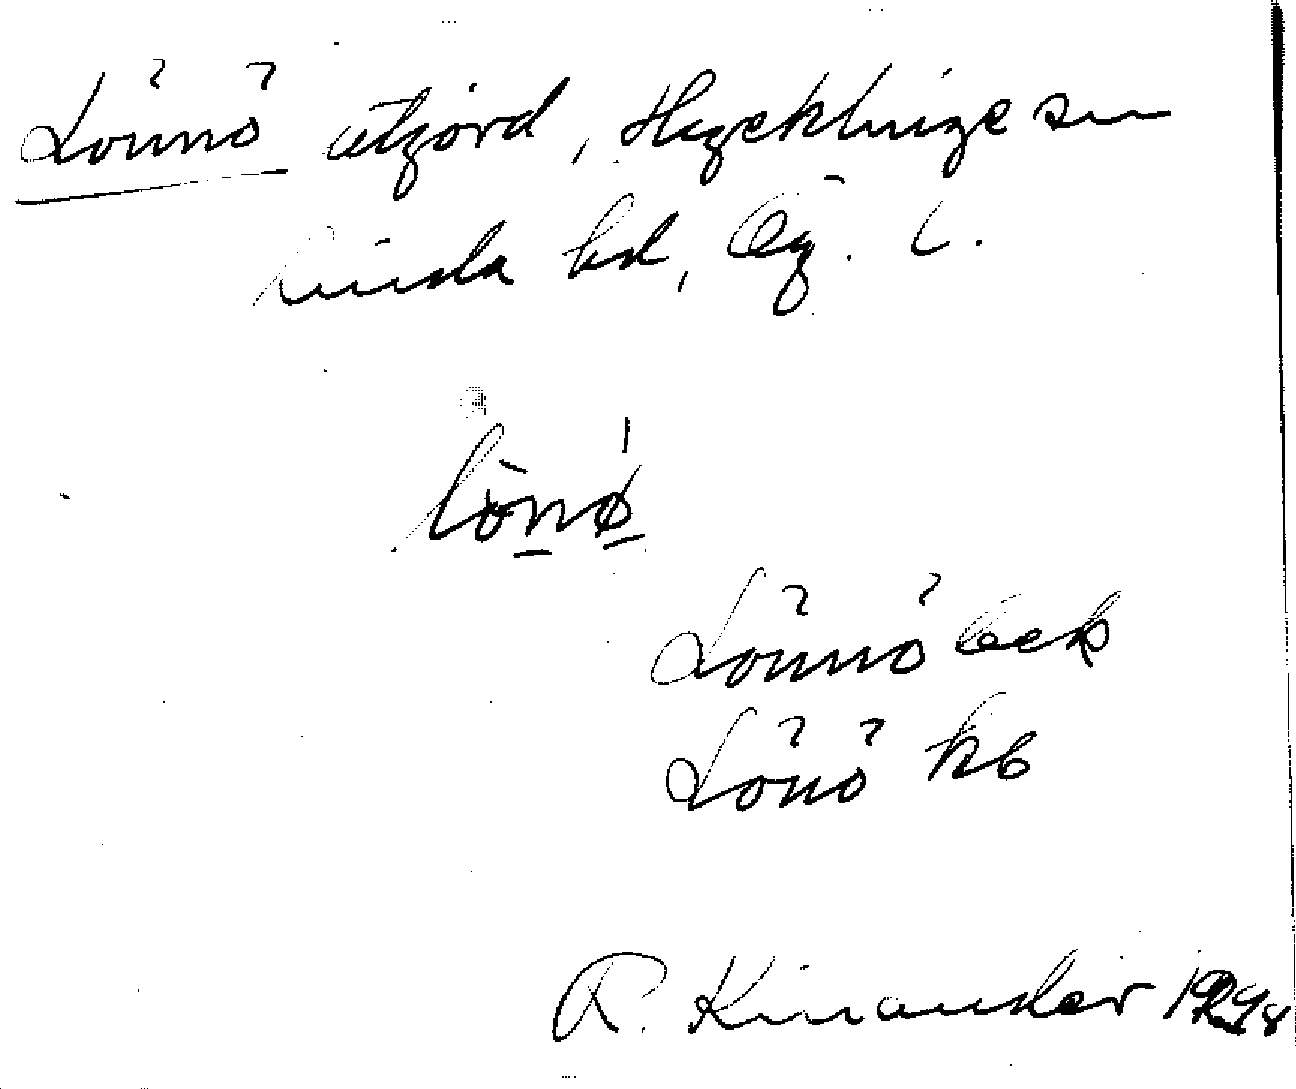 Lönnö utjord, Hycklinge sn
Kinda hd, Ög. L.
lönø
Lönnö eck
Lönö kb
R. Kinander